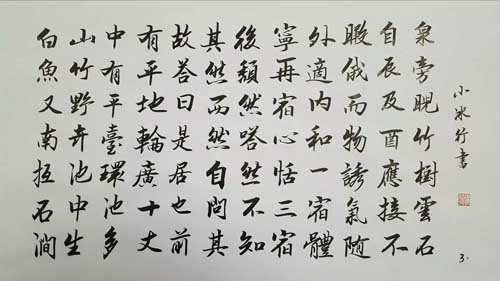 泉旁睨竹樹雲石
自辰及酉應接不
暇俄而物誘氣隨
外適內和一宿體
寧再宿心恬三宿
後頹然嗒然不知
其然而然自問其
故答曰是居也前
有平地輪廣十丈
中有平臺環池多
山竹野卉池中生
白魚又南抵石澗
小冰行書
3.